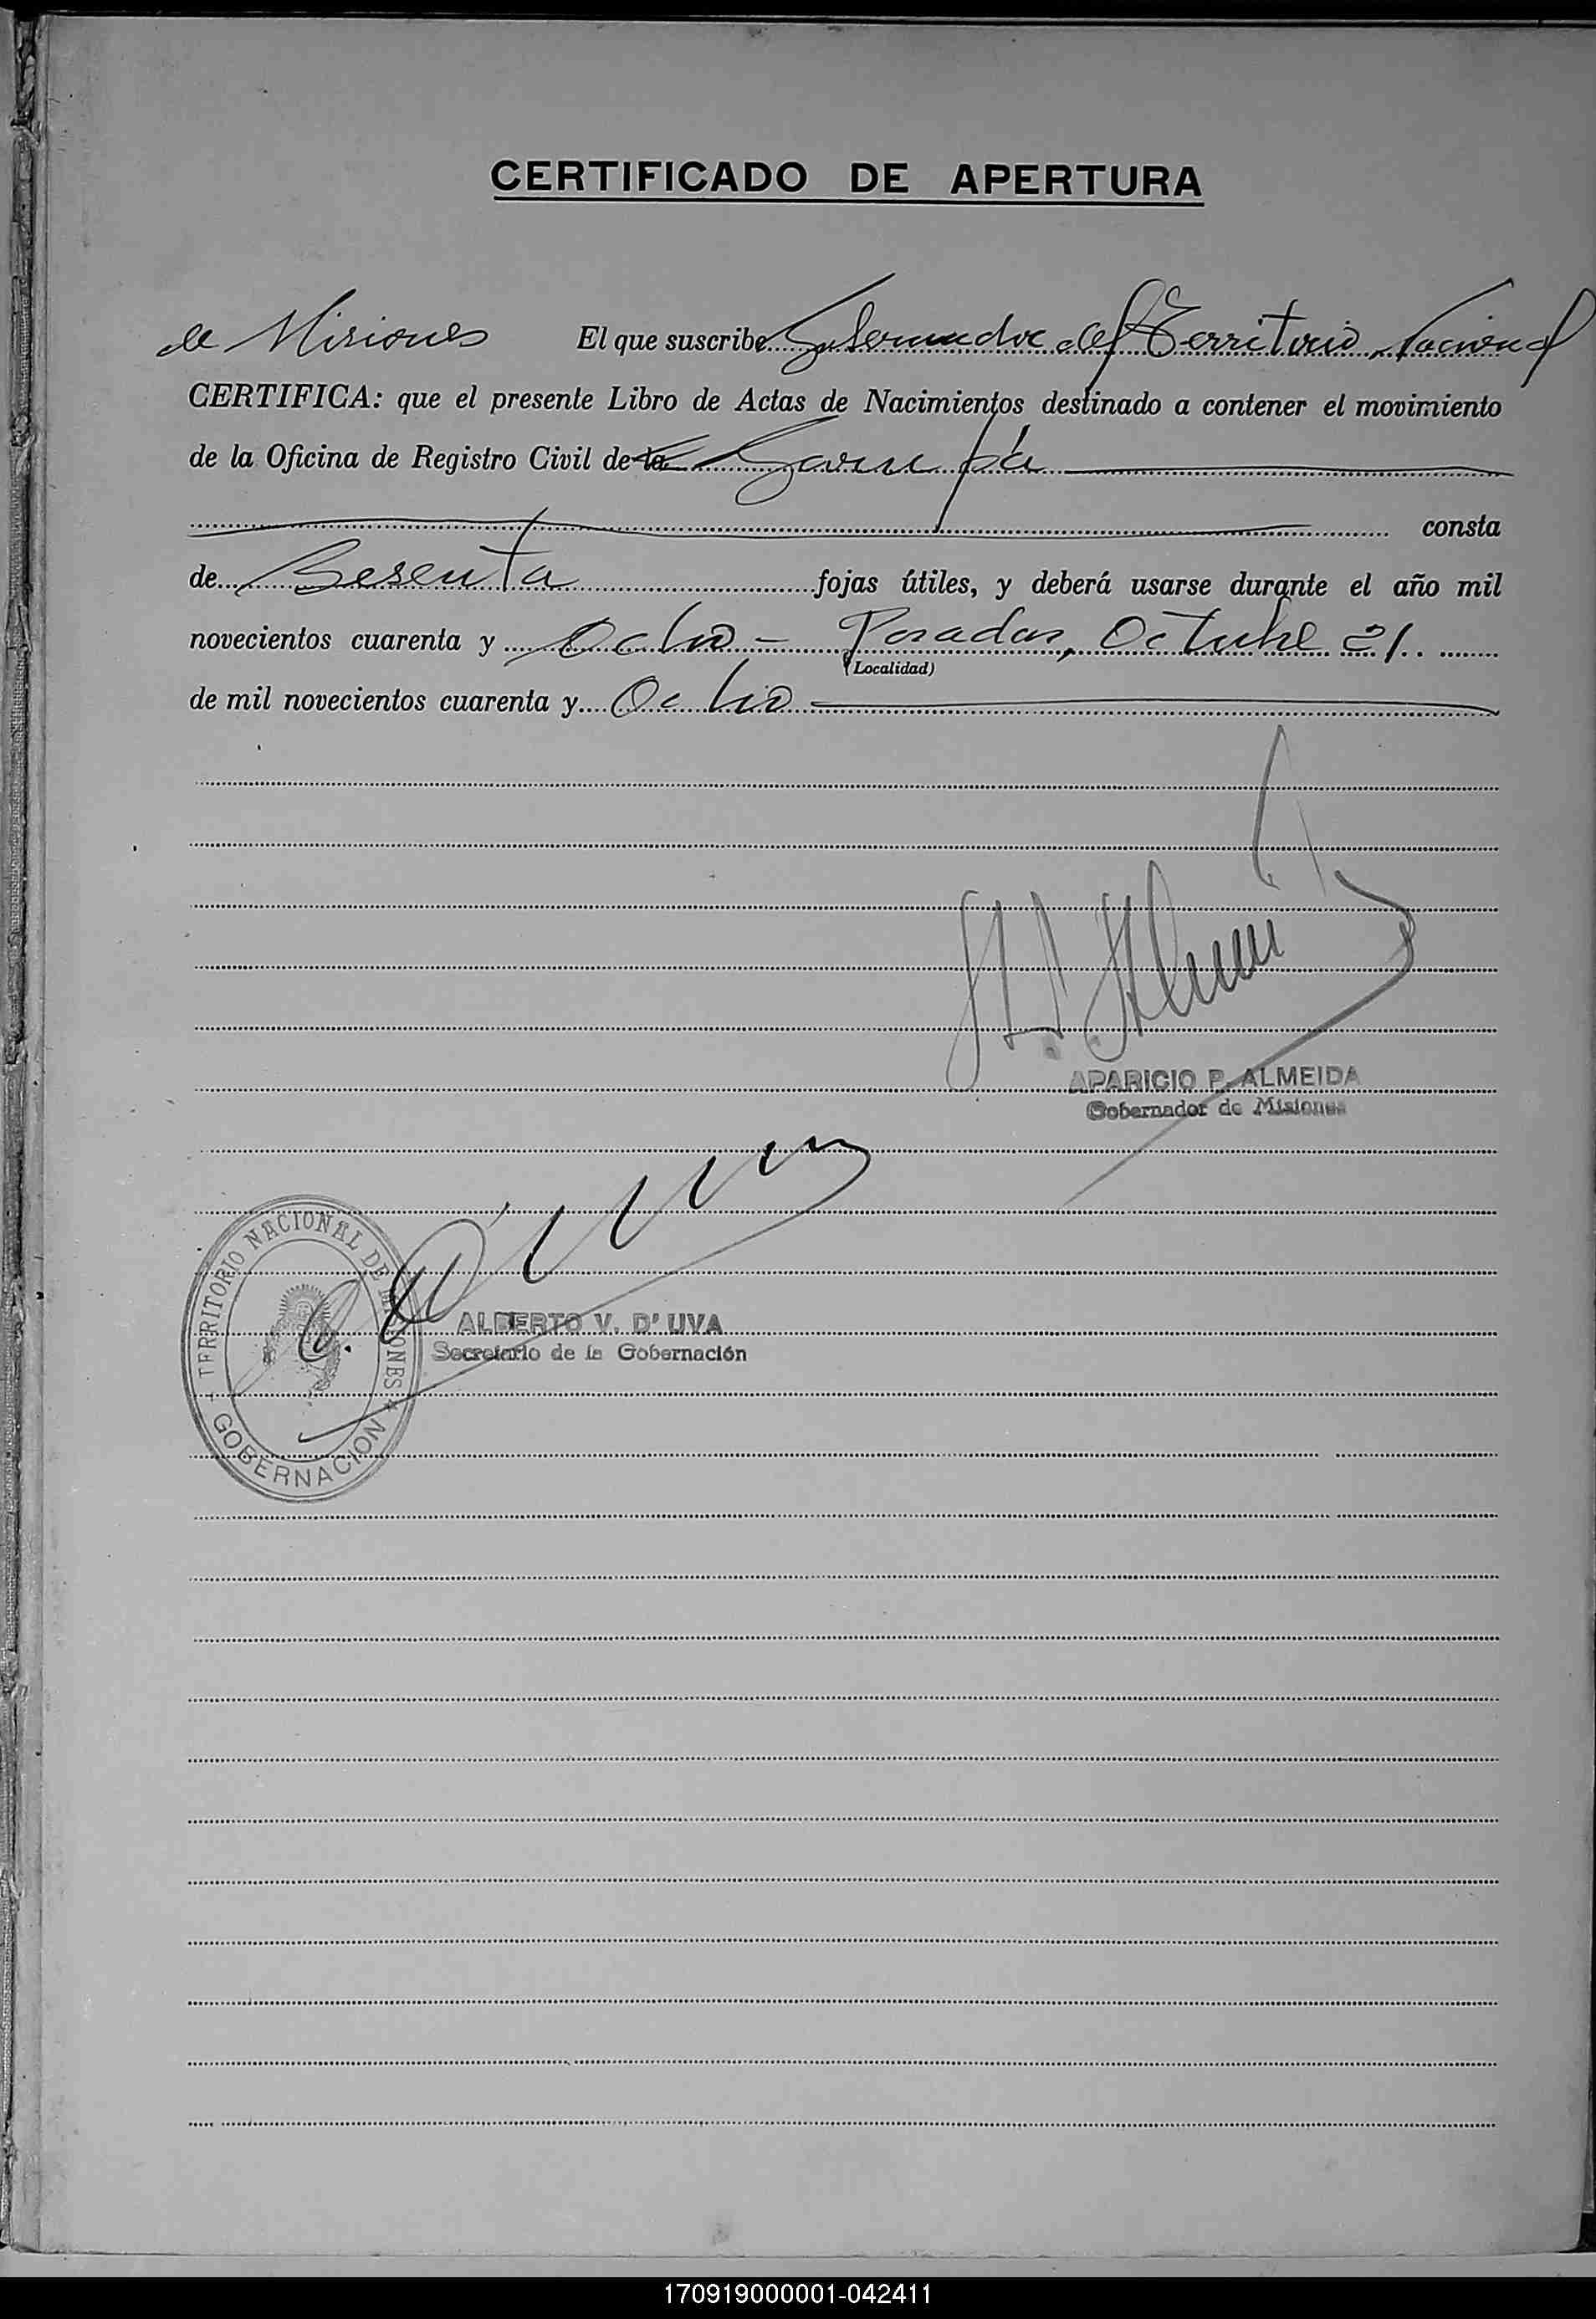 CERTIFICADO DE APERTURA
de Misiones El que suscribe Gobernador del Territorio Nacional
CERTIFICA: que el presente Libro de Actas de Nacimientos destinado a contener el movimiento
de la Oficina de Registro Civil de la Garupá
consta
de Sesenta fojas útiles, y deberá usarse durante el año mil
novecientos cuarenta y Ocho - Posadas, Octubre 21
(Localidad)
de mil novecientos cuarenta y Ocho
APARICIO P. ALMEIDA
Gobernador de Misiones
TERRITORIO NACIONAL DE MISIONES
GOBERNACION
ALBERTO V. D'UVA
Secretario de la Gobernación
170919000001-042411